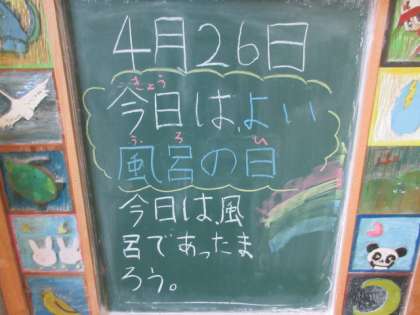 4月26日
きょう
今日は、よい
ふろ ひ
風呂の日
今日は風
呂であったま
ろう。